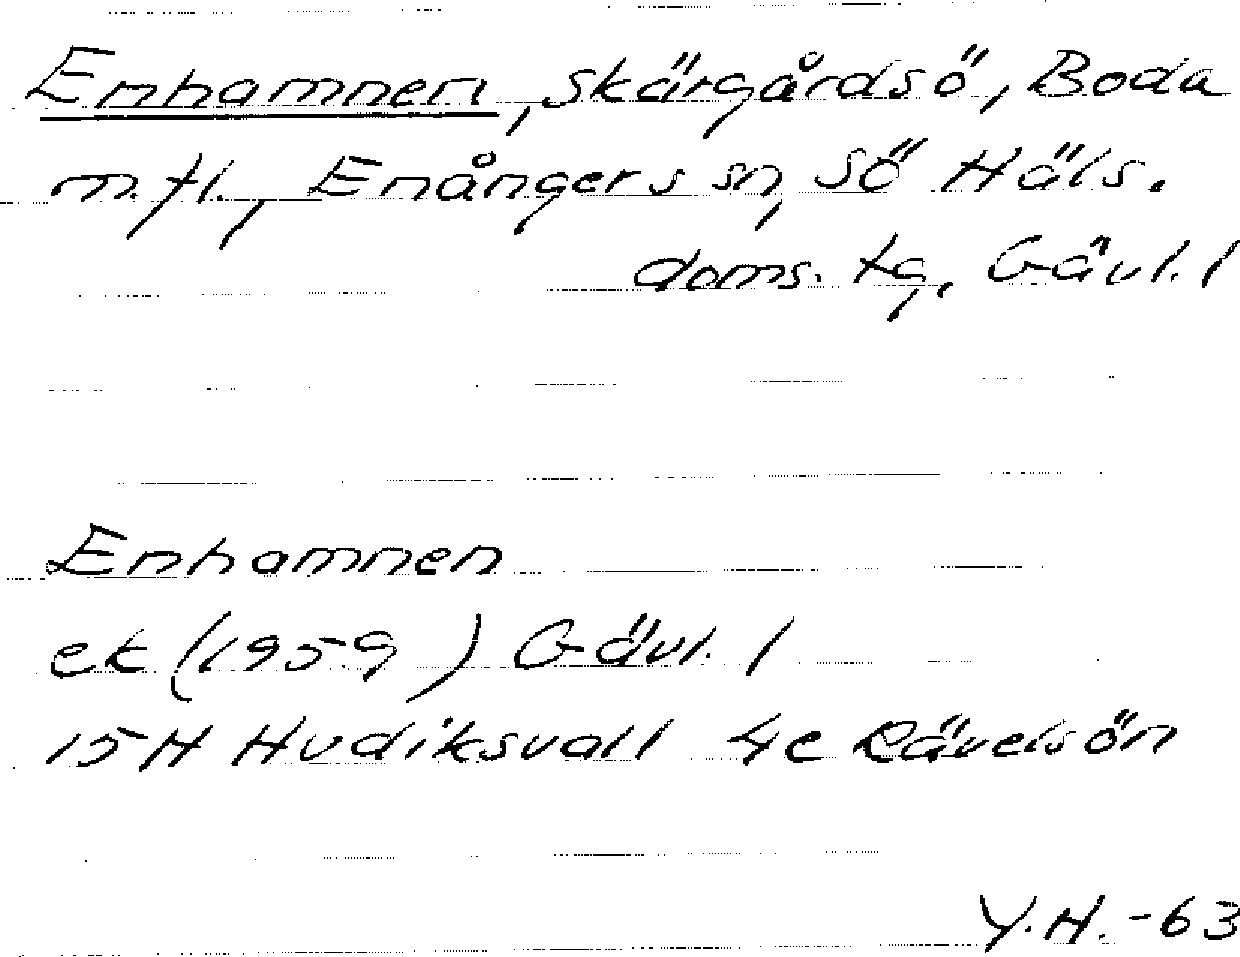 Enhamnen, skärgårdsö, Boda
m.fl., Enångers sn, Sö Häls.
doms. tg, Gävl. l
Enhamnen
ek (1959) Gävl. l
15H Hudiksvall 4c Rävelsön
Y.H. -63